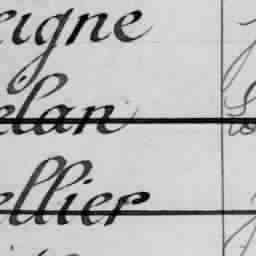 eigne
elan
ellier